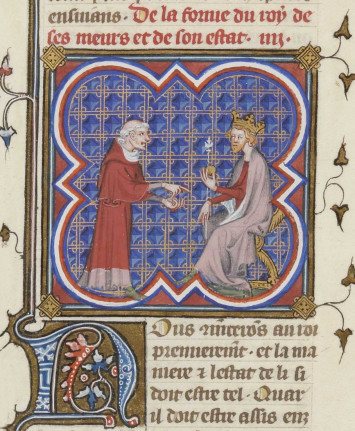 ensiuans · De la forme du roy de
ses meurs et de son estat · iiij ·
Nous au roi
premieremt · et la ma
niere ⁊ lestat de li si
doit estre tel · Quar
il doit estre assis enz